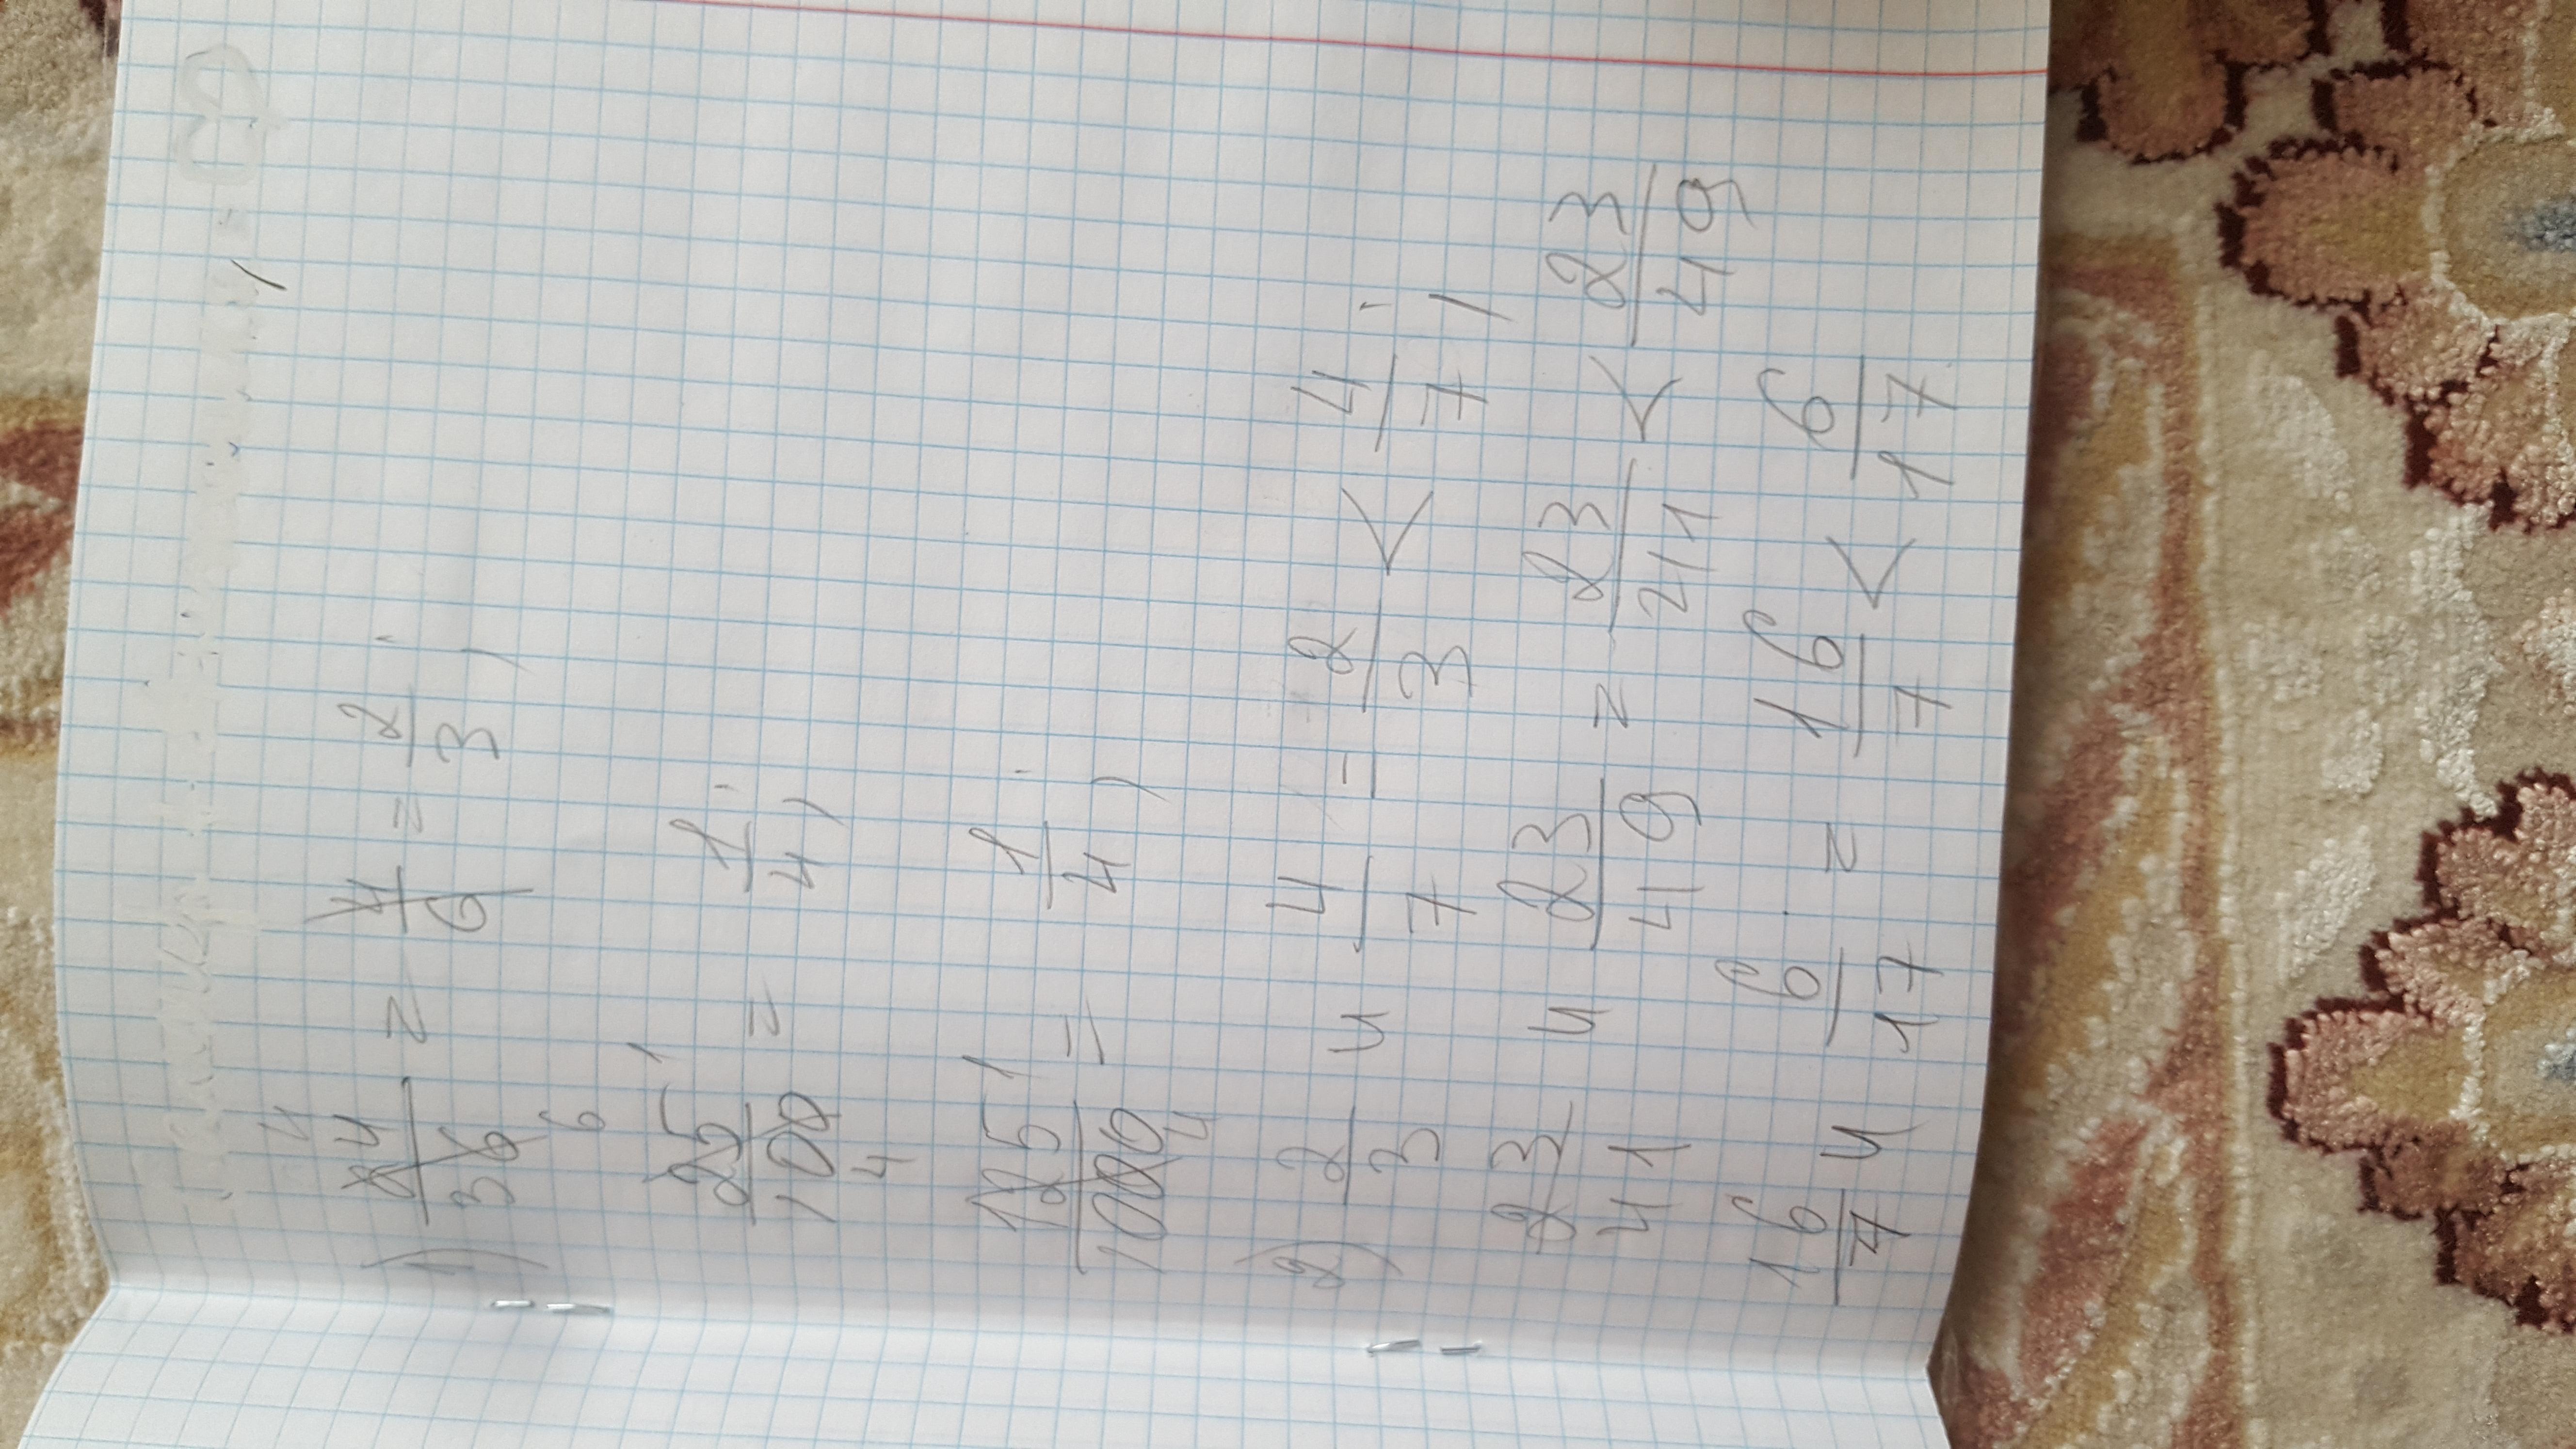 1) 24/36 4 6 = 4/6 = 2/3;
25/100 1 4 = 1/4;
125/1000 1 4 = 1/4;
2) 2/3 и 4/7 = 2/3 < 4/7;
23/41 и 23/49 = 23/41 < 23/49
16/7 и 6/17 = 16/7 < 6/17